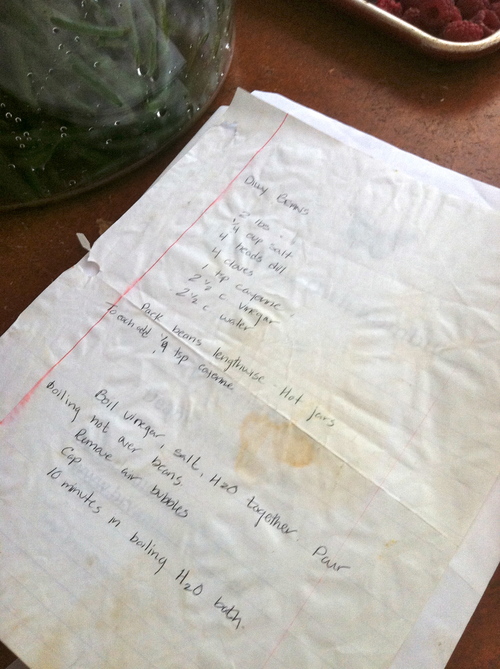 Dilly Beans
2 lbs.
1/4 cup salt
4 heads dill
4 cloves
1 tsp cayenne.
2 1/2 c vinegar
2 1/2 c water
Pack beans lengthwise. Hot jars
To each add 1/4 tsp cayenne
Boil vinegar, salt, H2O together. Pour
boiling hot over beans
Remove air bubbles
Cap
10 minutes in boiling H2O bath.